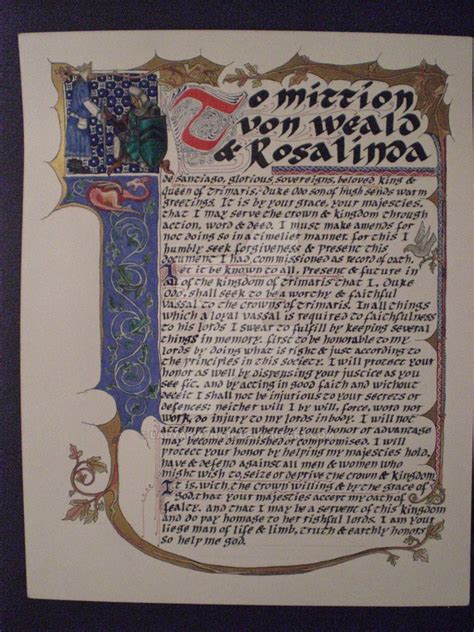 To mittion
von weald
& Rosalinda
de santiago, glorious sovereigns, beloved king &
queen of trimaris. Duke odo son of hugh sends warm
greetings. It is by your grace, your majesties,
that I may serve the crown & kingdom through
action, word & deed. I must make amends for
not doing so in a timelier manner. for this I
humbly seek forgiveness & present this
document I had commissioned as record of oath.
Let it be known to all, present & future in
all of the kingdom of trimaris that I, Duke
odo, shall seek to be a worthy & faithful
vassal to the crowns of trimaris. In all things
which a loyal vassal is required to faithfulness
to his lords I swear to fulfill by keeping several
things in memory. first to be honorable to my
lords by doing what is right & just according to
the principles in this society. I will protect your
honor as well by dispensing your justice as you
see fit, and by acting in good faith and without
deceit I shall not be injurious to your secrets or
defences: neither will I by will, force, word nor
work, do injury to my lords in body. I will not
attempt any act whereby your honor or advantage
may become diminished or compromised. I will
protect your honor by helping my majesties hold,
have & defend against all men & women who
might wish to seize or deprive the crown & kingdom.
It is, with the crown willing & by the grace of
God, that your majesties accept my oath of
fealty, and that I may be a servent of this kingdom
and do pay homage to her rightful lords. I am your
liege man of life & limb, truth & earthly honors
so help me god.